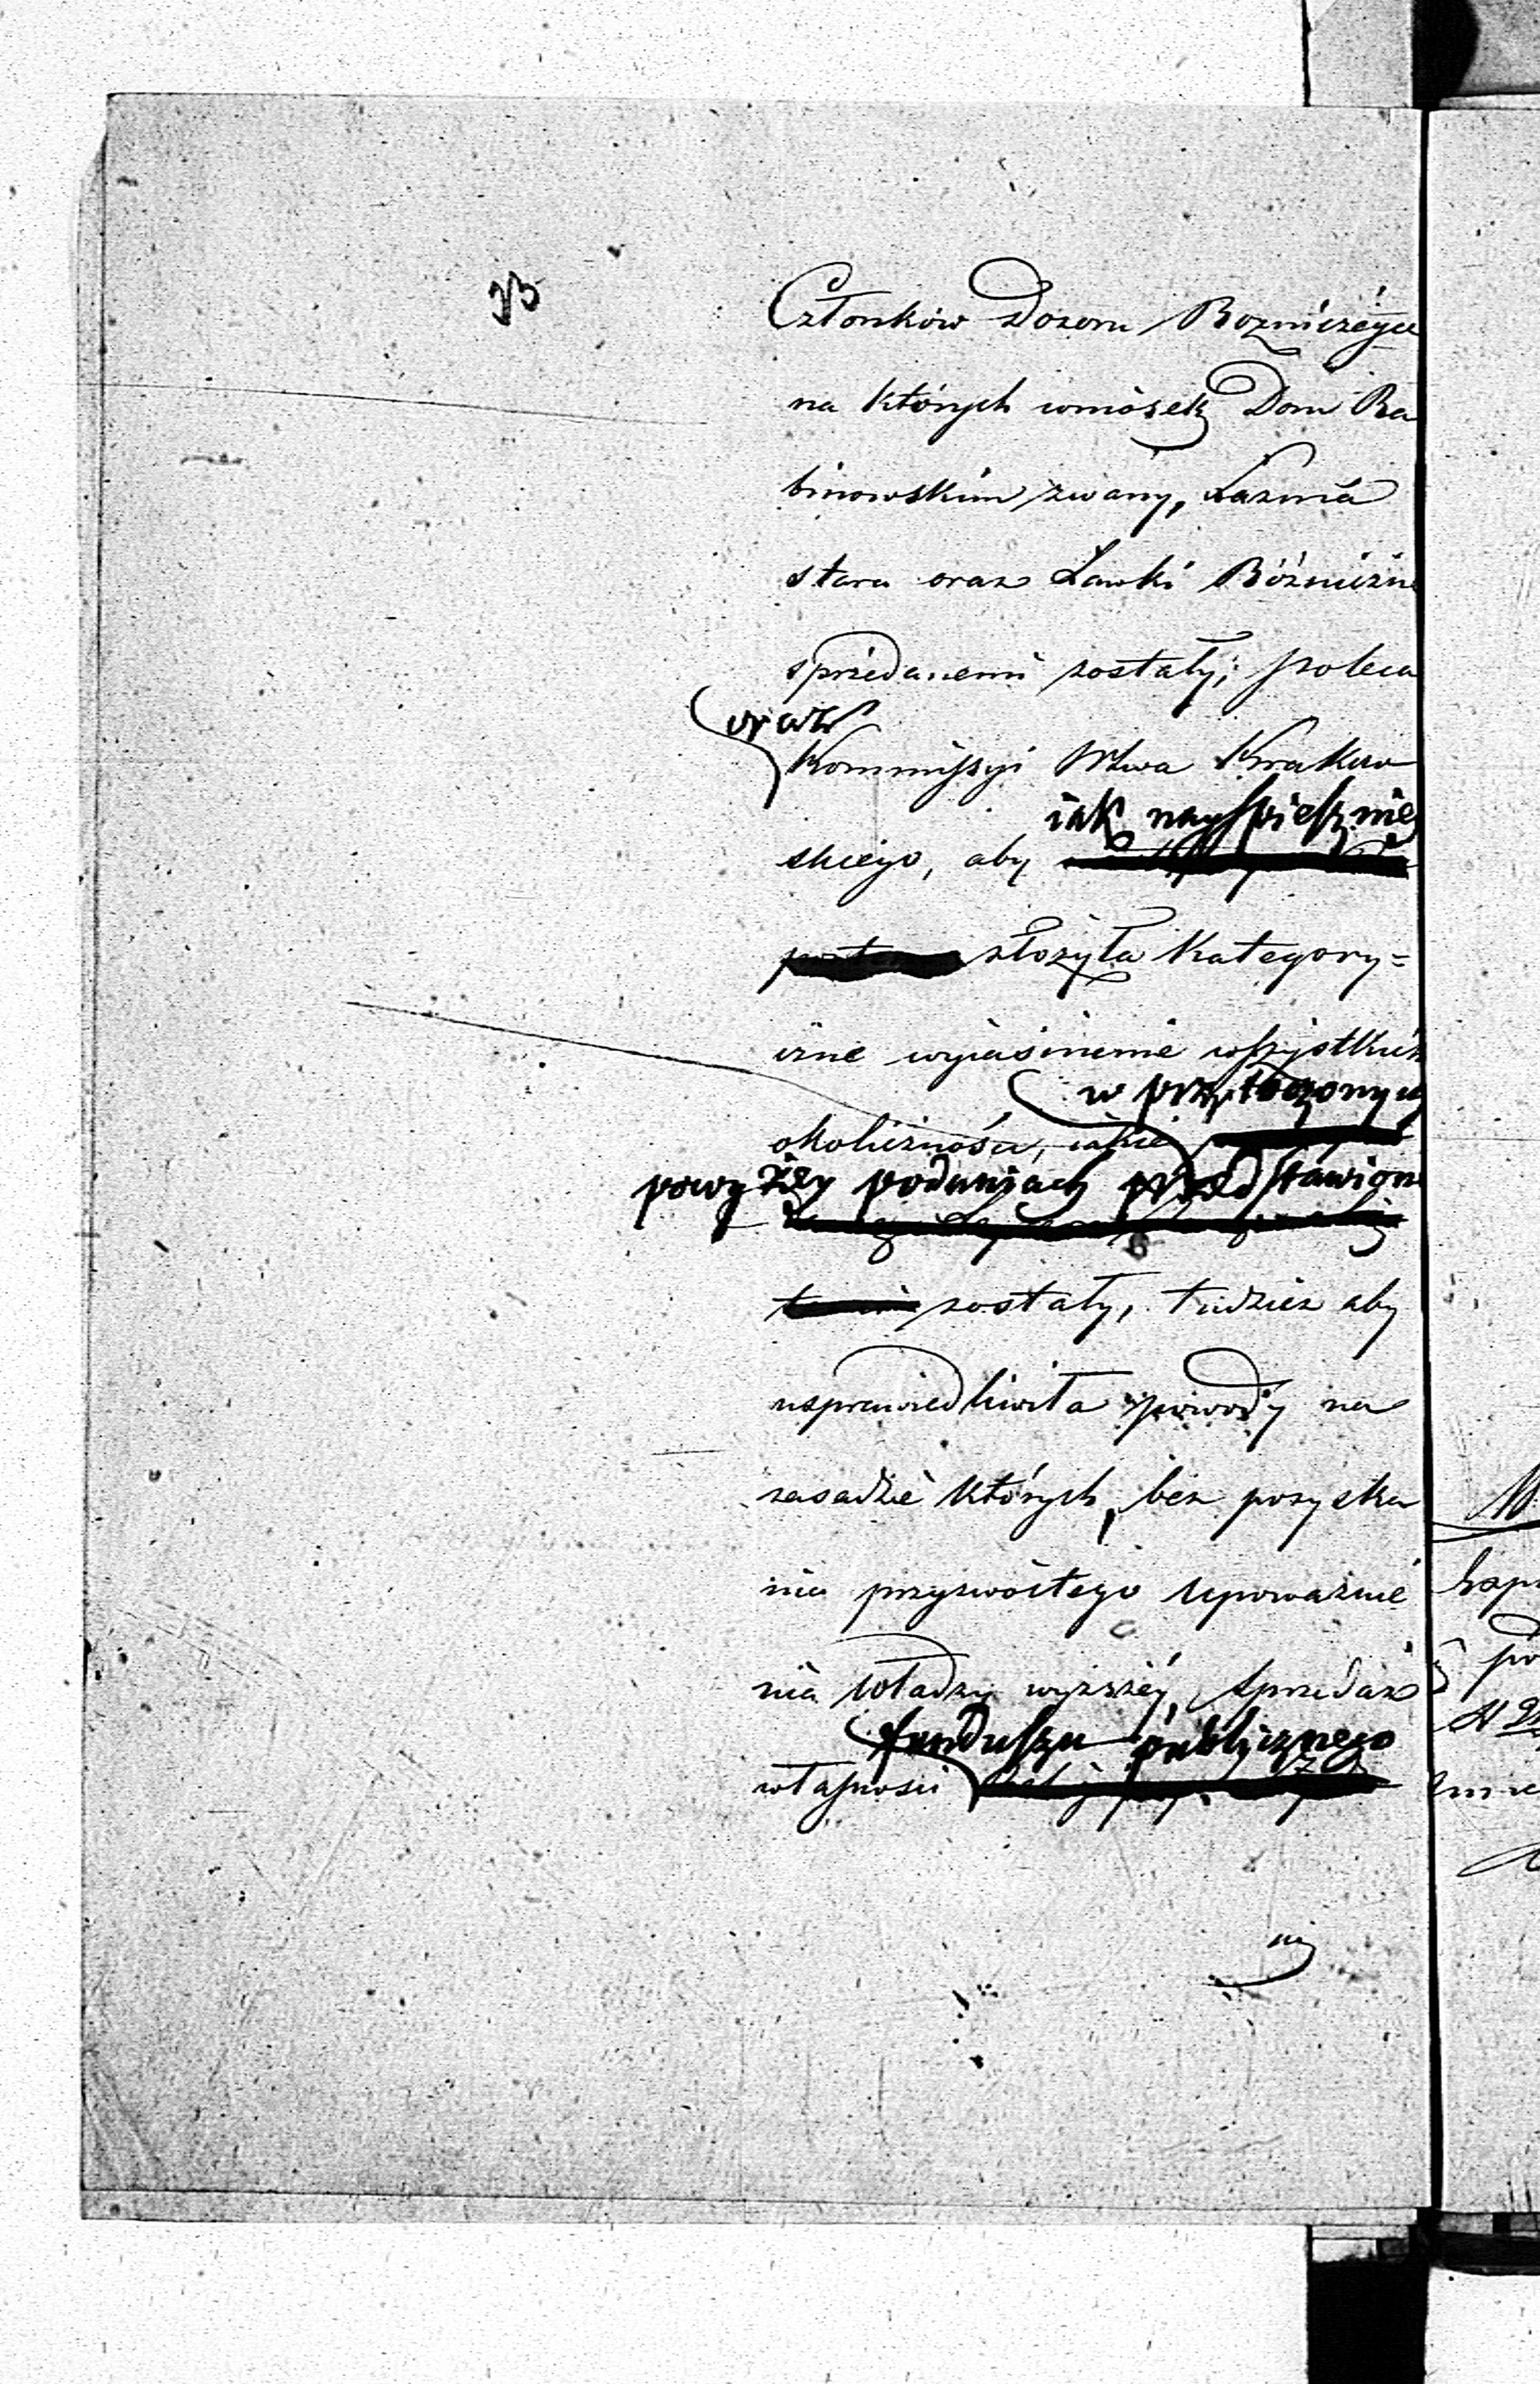 Członków Dozoru Bozniczégo
na których wniosek Dom Ra
binowskim zwany, Łaznia
stara oraz Ławki Bóżnicżne
sprzedanemi zostały; poleca
oraz
Kommissyi Wtwa Krakow
iak nayspieszniey
skiego, aby
złożyła kategory=
czne wyiaśnienie wszystkich
w przytoczonych
okoliczności, iakie
powyżey podaniach przedstawione
zostały, tudzież aby
usprawiedliwiła powody na
zasadzie których, bez pozyska
nia przyzwoitego upoważnie
nia Władzy wyższéy, sprzedaż
funduszu publicznego
własności